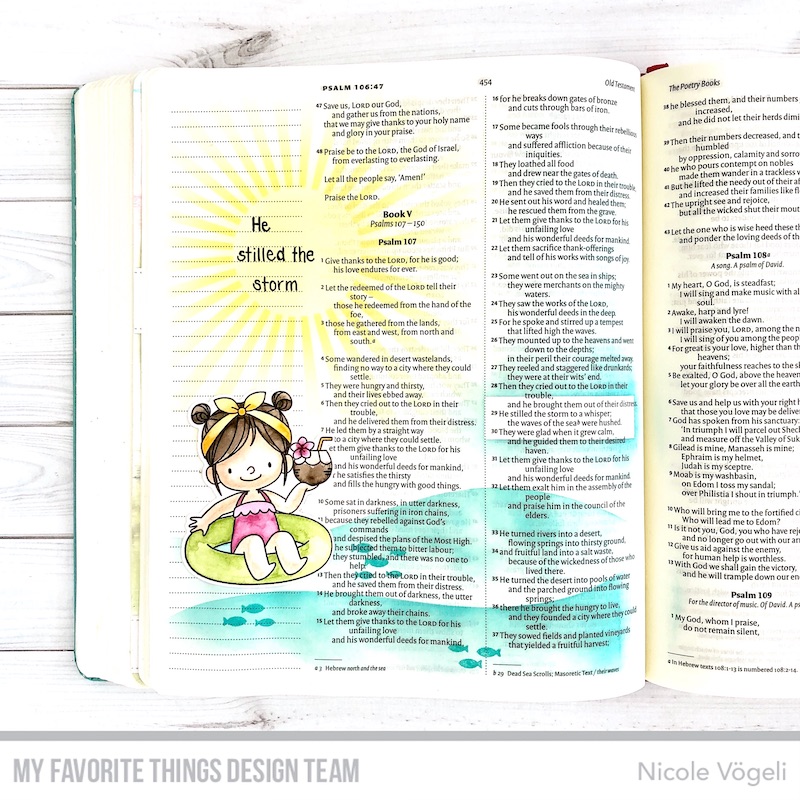 PSALM 106:47
454
Old Testament
47 Save us, LORD our God,
and gather us from the nations,
that we may give thanks to your holy name
and glory in your praise.
48 Praise be to the LORD, the God of Israel,
from everlasting to everlasting.
Let all the people say, 'Amen!'
Praise the LORD.
Book V
Psalms 107–150
Psalm 107
1 Give thanks to the LORD, for he is good;
his love endures for ever.
2 Let the redeemed of the LORD tell their
story –
those he redeemed from the hand of the
foe,
3 those he gathered from the lands,
from east and west, from north and
south.a
4 Some wandered in desert wastelands,
finding no way to a city where they could
settle.
5 They were hungry and thirsty,
and their lives ebbed away.
6 Then they cried out to the LORD in their
trouble,
and he delivered them from their distress.
7 He led them by a straight way
to a city where they could settle.
let them give thanks to the LORD for his
unfailing love
and his wonderful deeds for mankind,
he satisfies the thirsty
and fills the hungry with good things.
10 Some sat in darkness, in utter darkness,
prisoners suffering in iron chains,
because they rebelled against God's
commands
and despised the plans of the Most High.
he subjected them to bitter labour;
they stumbled, and there was no one to
help
13 Then they cried to the LORD in their trouble,
and he saved them from their distress.
14 He brought them out of darkness, the utter
darkness,
and broke away their chains.
15 Let them give thanks to the LORD for his
unfailing love
and his wonderful deeds for mankind,
a 3 Hebrew north and the sea
He
stilled the
storm
16 for he breaks down gates of bronze
and cuts through bars of iron.
17 Some became fools through their rebellious
ways
and suffered affliction because of their
iniquities.
18 They loathed all food
and drew near the gates of death.
19 Then they cried to the LORD in their trouble,
and he saved them from their distress.
20 He sent out his word and healed them;
he rescued them from the grave.
21 Let them give thanks to the LORD for his
unfailing love
and his wonderful deeds for mankind.
22 Let them sacrifice thank-offerings
and tell of his works with songs of joy.
23 Some went out on the sea in ships;
they were merchants on the mighty
waters.
24 They saw the works of the LORD,
his wonderful deeds in the deep.
25 For he spoke and stirred up a tempest
that lifted high the waves.
26 They mounted up to the heavens and went
down to the depths;
in their peril their courage melted away.
27 They reeled and staggered like drunkards;
they were at their wits' end.
28 Then they cried out to the LORD in their
trouble,
and he brought them out of their distress.
29 He stilled the storm to a whisper;
the waves of the sea b were hushed.
30 They were glad when it grew calm,
and he guided them to their desired
haven.
31 Let them give thanks to the LORD for his
unfailing love
and his wonderful deeds for mankind.
32 Let them exalt him in the assembly of the
people
and praise him in the council of the
elders.
33 He turned rivers into a desert,
flowing springs into thirsty ground,
34 and fruitful land into a salt waste,
because of the wickedness of those who
lived there.
35 He turned the desert into pools of water
and the parched ground into flowing
springs;
36 there he brought the hungry to live,
and they founded a city where they could
settle.
37 They sowed fields and planted vineyards
that yielded a fruitful harvest;
b 29 Dead Sea Scrolls; Masoretic Text / their waves
The Poetry Books
38 he blessed them, and their numbers
increased,
and he did not let their herds dimi
39 Then their numbers decreased, and t
humbled
by oppression, calamity and sorro
40 he who pours contempt on nobles
made them wander in a trackless w
41 But he lifted the needy out of their af
and increased their families like fl
42 The upright see and rejoice,
but all the wicked shut their mout
43 Let the one who is wise heed these th
and ponder the loving deeds of th
Psalm 108a
A song. A psalm of David.
1 My heart, O God, is steadfast;
I will sing and make music with al
soul.
2 Awake, harp and lyre!
I will awaken the dawn.
3 I will praise you, LORD, among the n
I will sing of you among the peop
4 For great is your love, higher than th
heavens;
your faithfulness reaches to the sk
5 Be exalted, O God, above the heaven
let your glory be over all the earth
6 Save us and help us with your right h
that those you love may be deliver
7 God has spoken from his sanctuary:
'In triumph I will parcel out Shech
and measure off the Valley of Suk
8 Gilead is mine, Manasseh is mine;
Ephraim is my helmet,
Judah is my sceptre.
9 Moab is my washbasin,
on Edom I toss my sandal;
over Philistia I shout in triumph.'
10 Who will bring me to the fortified ci
Who will lead me to Edom?
11 Is it not you, God, you who have reje
and no longer go out with our arm
12 Give us aid against the enemy,
for human help is worthless.
13 With God we shall gain the victory,
and he will trample down our en
Psalm 109
For the director of music. Of David. A ps
1 My God, whom I praise,
do not remain silent,
a In Hebrew texts 108:1-13 is numbered 108:2-14.
MY FAVORITE THINGS DESIGN TEAM
Nicole Vögeli